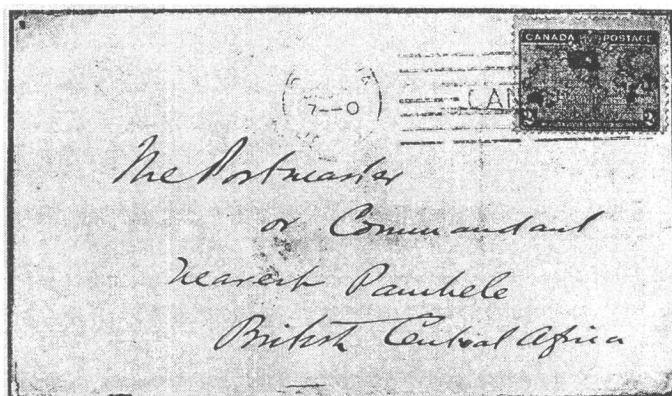 CANADA POSTAGE
2 2
7—0
CAN
The Postmaster
or Commandant
nearest Pambele
British Central Africa